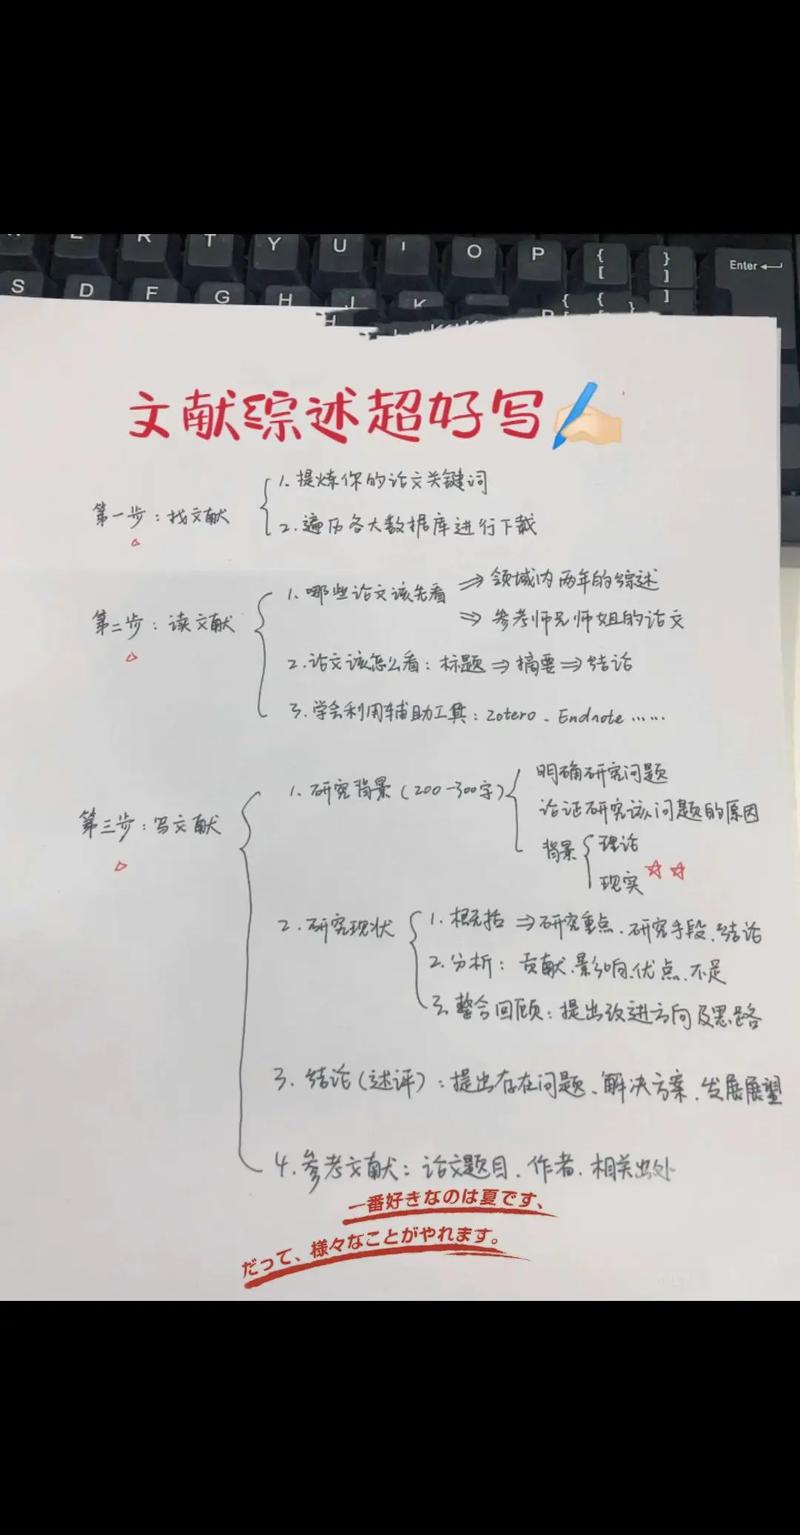 E R T Y U I O P { [ } ] Enter
S D F G H J K
文献综述超好写
第一步：找文献
1. 提炼你的论文关键词
2. 遍历各大数据库进行下载
第二步：读文献
1. 哪些论文该先看 ⇒ 领域内两年的综述
⇒ 参考师兄师姐的论文
2. 论文该怎么看：标题⇒摘要⇒结论
3. 学会利用辅助工具：Zotero、Endnote……
第三步：写文献
1. 研究背景（200-300字）
明确研究问题
论证研究该问题的原因
背景
理论
现实
2. 研究现状
1. 概括 ⇒研究重点、研究手段、结论
2. 分析：贡献、影响、优点、不足
3. 整合回顾：提出改进方向及思路
3. 结论（述评）：提出存在问题、解决方案、发展展望
4. 参考文献：论文题目、作者、相关出处
一番好きなのは夏です、
だって、様々なことがやれます。